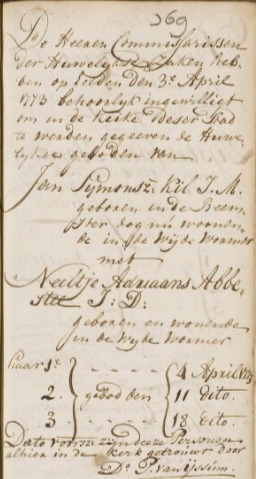 369
De Heeren Commissarissen
der Huwelykse Zaken heb-
ben op heeden den 3e April
1773 behoorlyk ingewilligt
om in de Kerke deser Stad
te werden gegeeven de Huwe-
lykse geboden van
Jan Sijmonsz: Kil J. M.
geboren in de Beem-
ster dog nu woonen-
de in de Wijde Wormer
met
Neeltje Adriaans Abbe-
J: D:
geboren en wonende
in de Wyde Wormer
haar 1e - - - - 4 April 1773
2. geboden 11 dito.
3 - - - - 18 dito.
Dato voorm: zijn deeze Personen
alhier in de Kerk getrouwt door
Ds. P. van